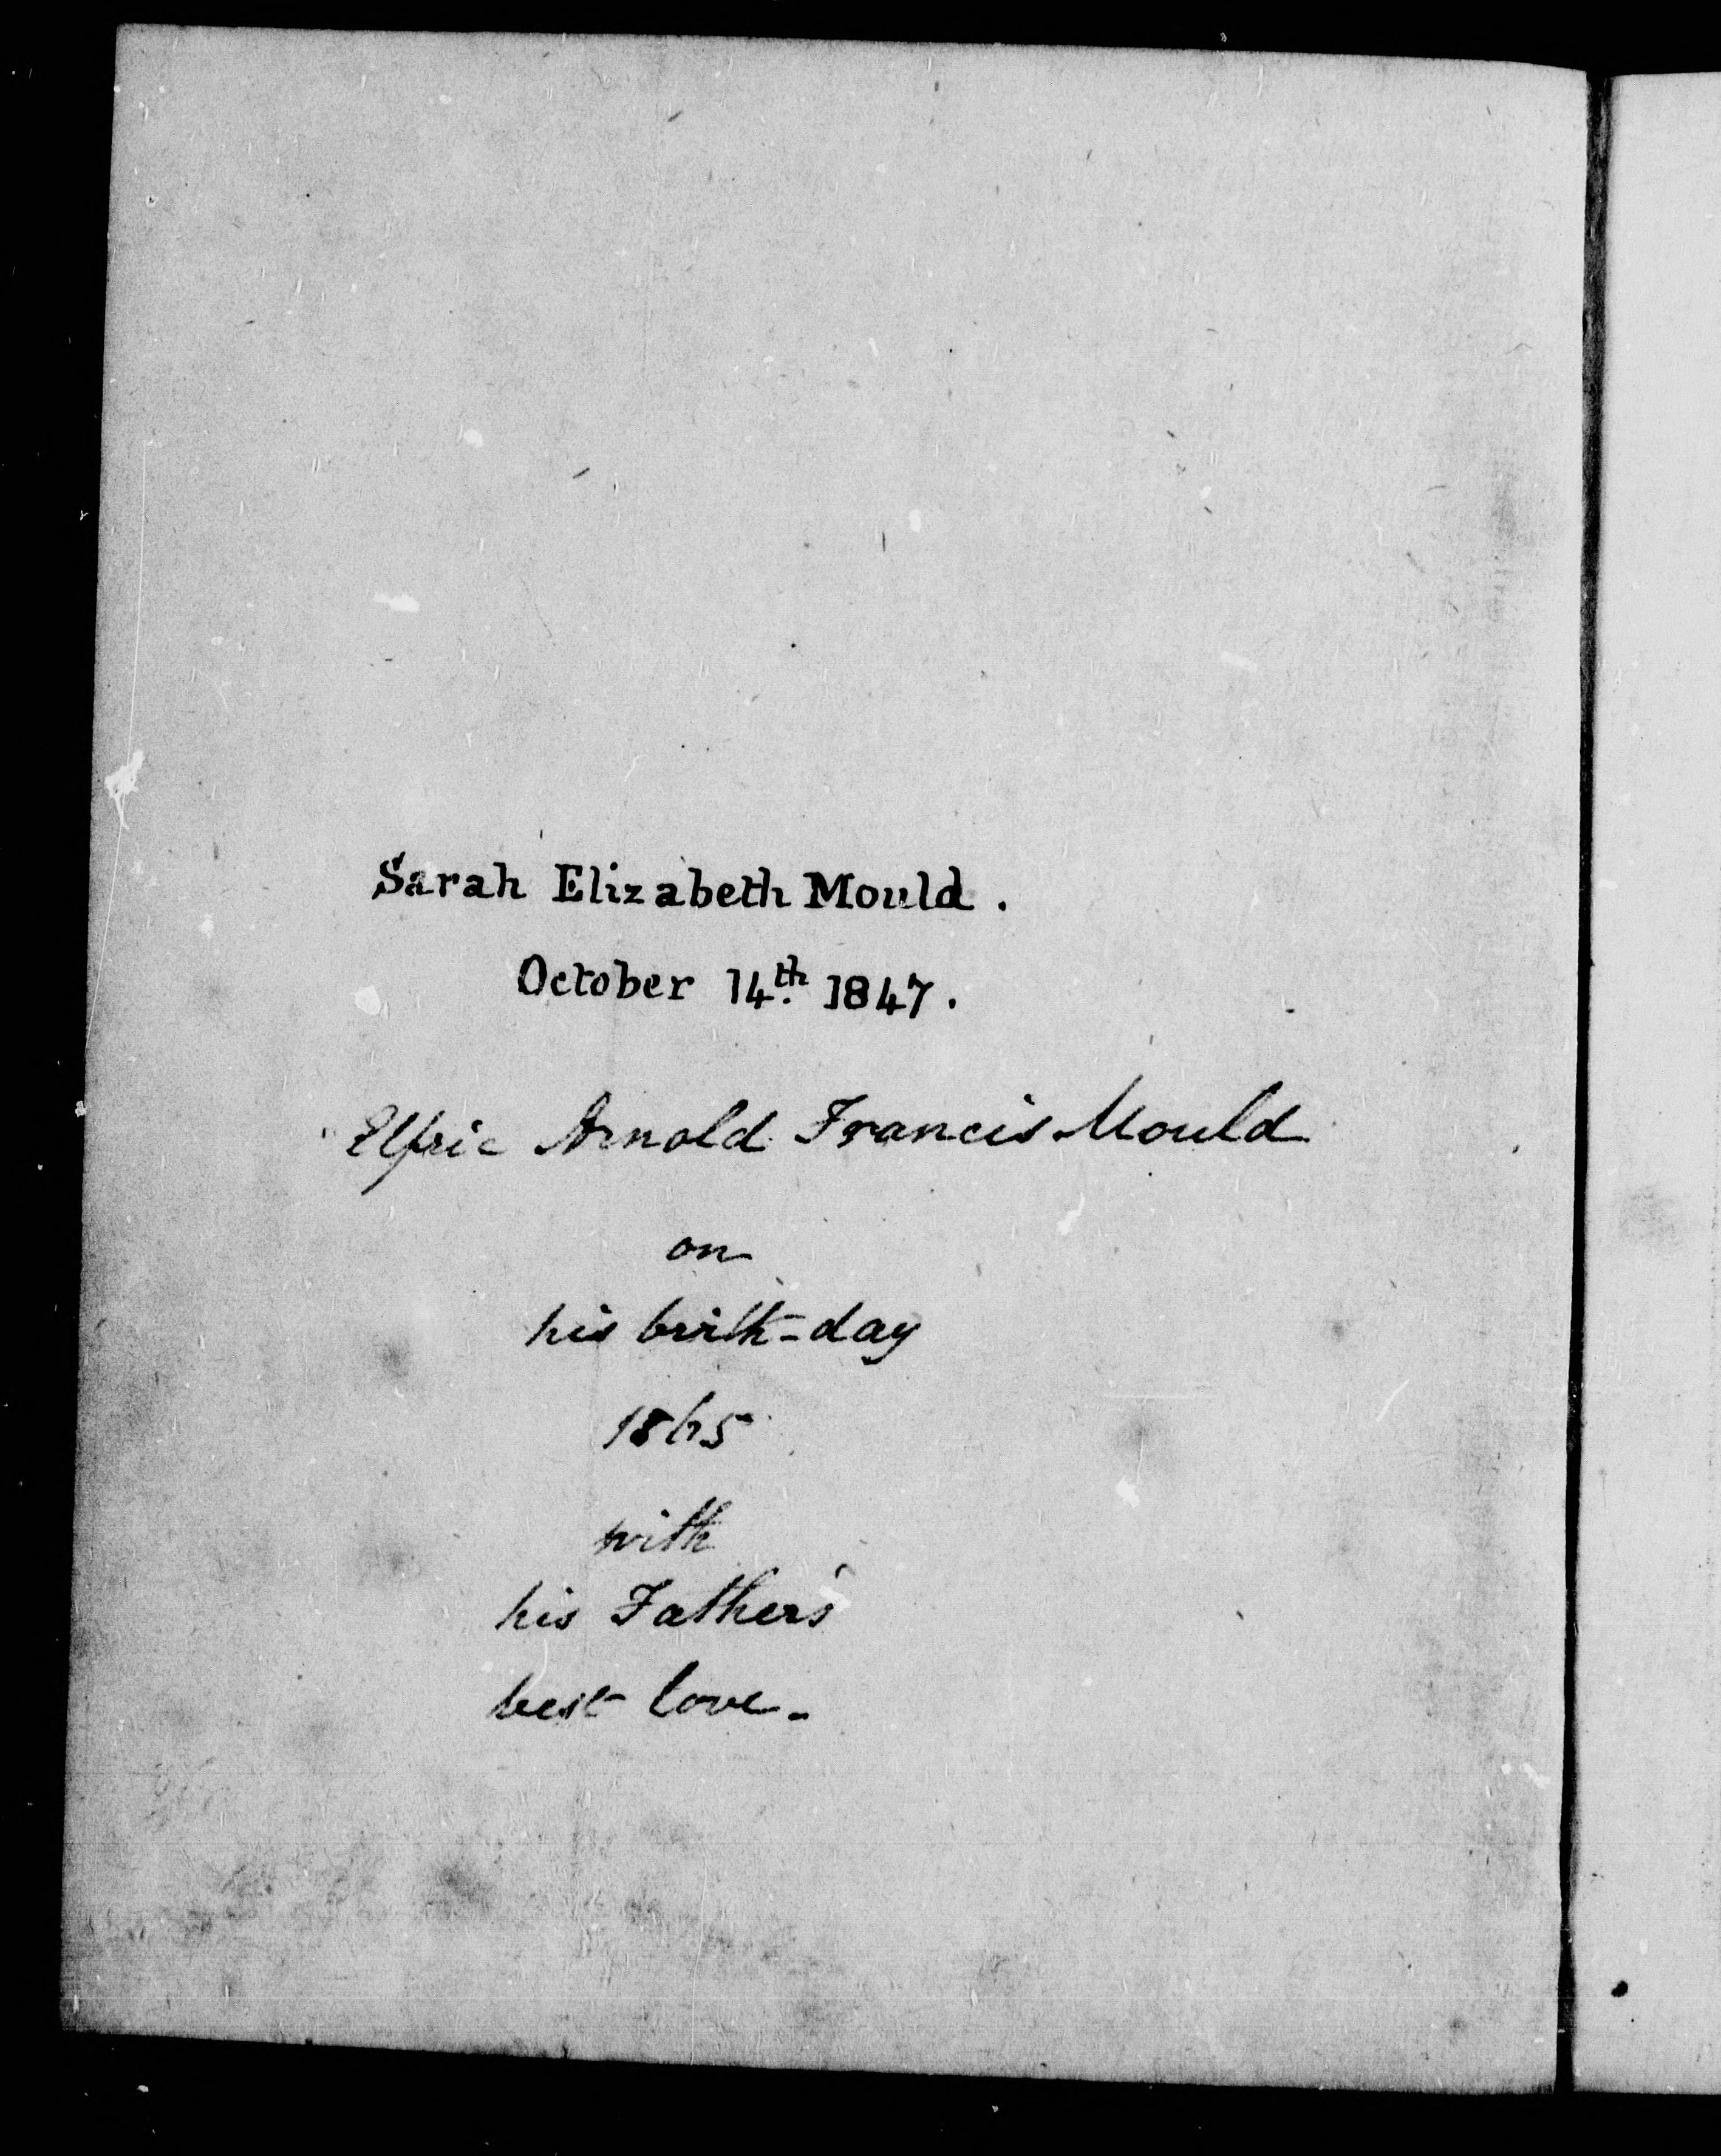 Sarah Elizabeth Mould.
October 14th. 1847.
Elfric Arnold Francis Mould
on
his birth-day
1865
with
his Father's
best love.